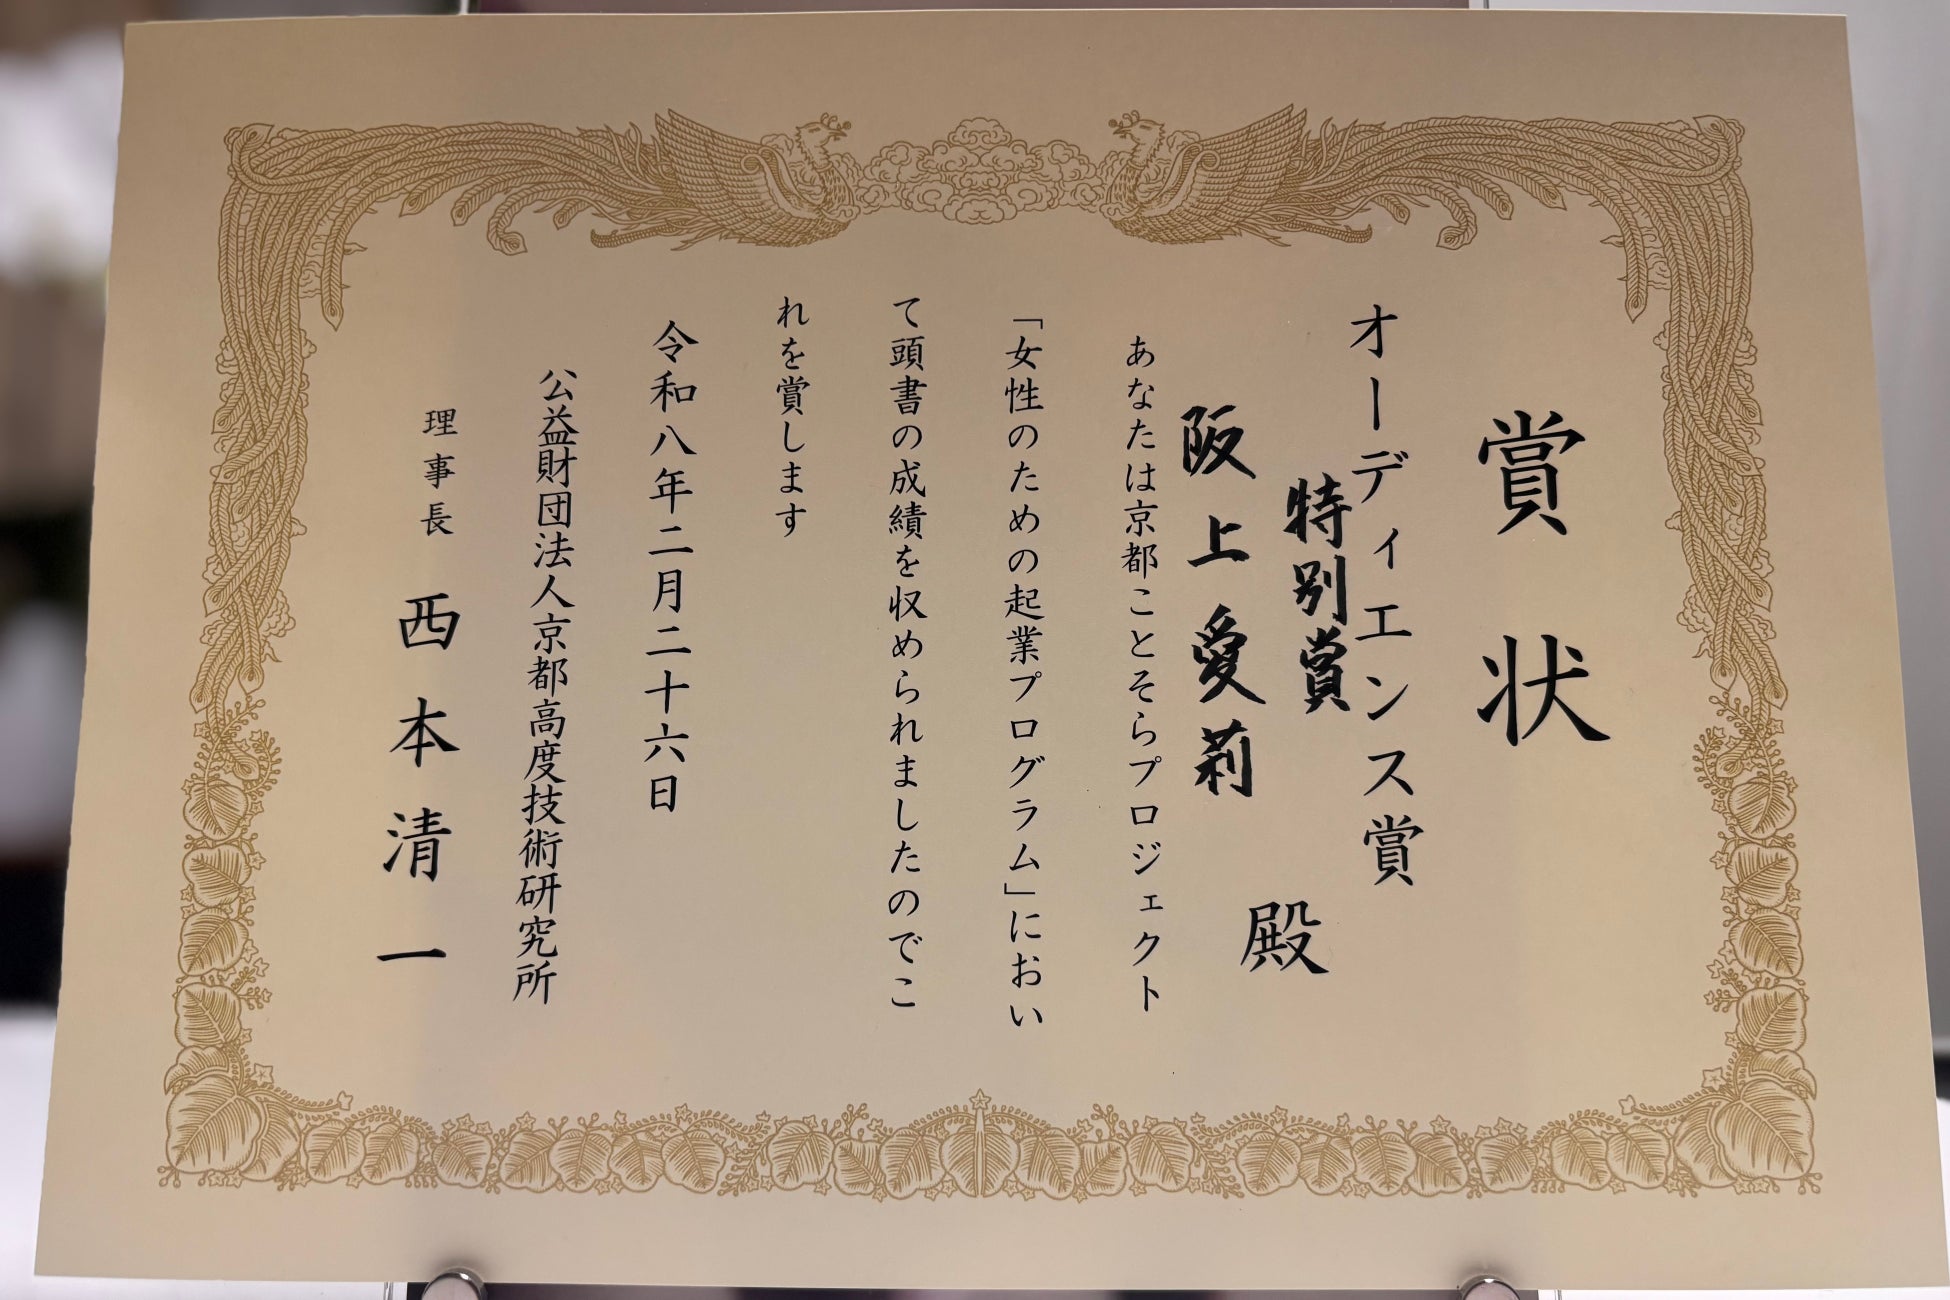 賞状
オーディエンス賞
特別賞
阪上愛莉 殿
あなたは京都ことそらプロジェクト
「女性のための起業プログラム」におい
て頭書の成績を収められましたのでこ
れを賞します
令和八年二月二十六日
公益財団法人京都高度技術研究所
理事長 西本清一